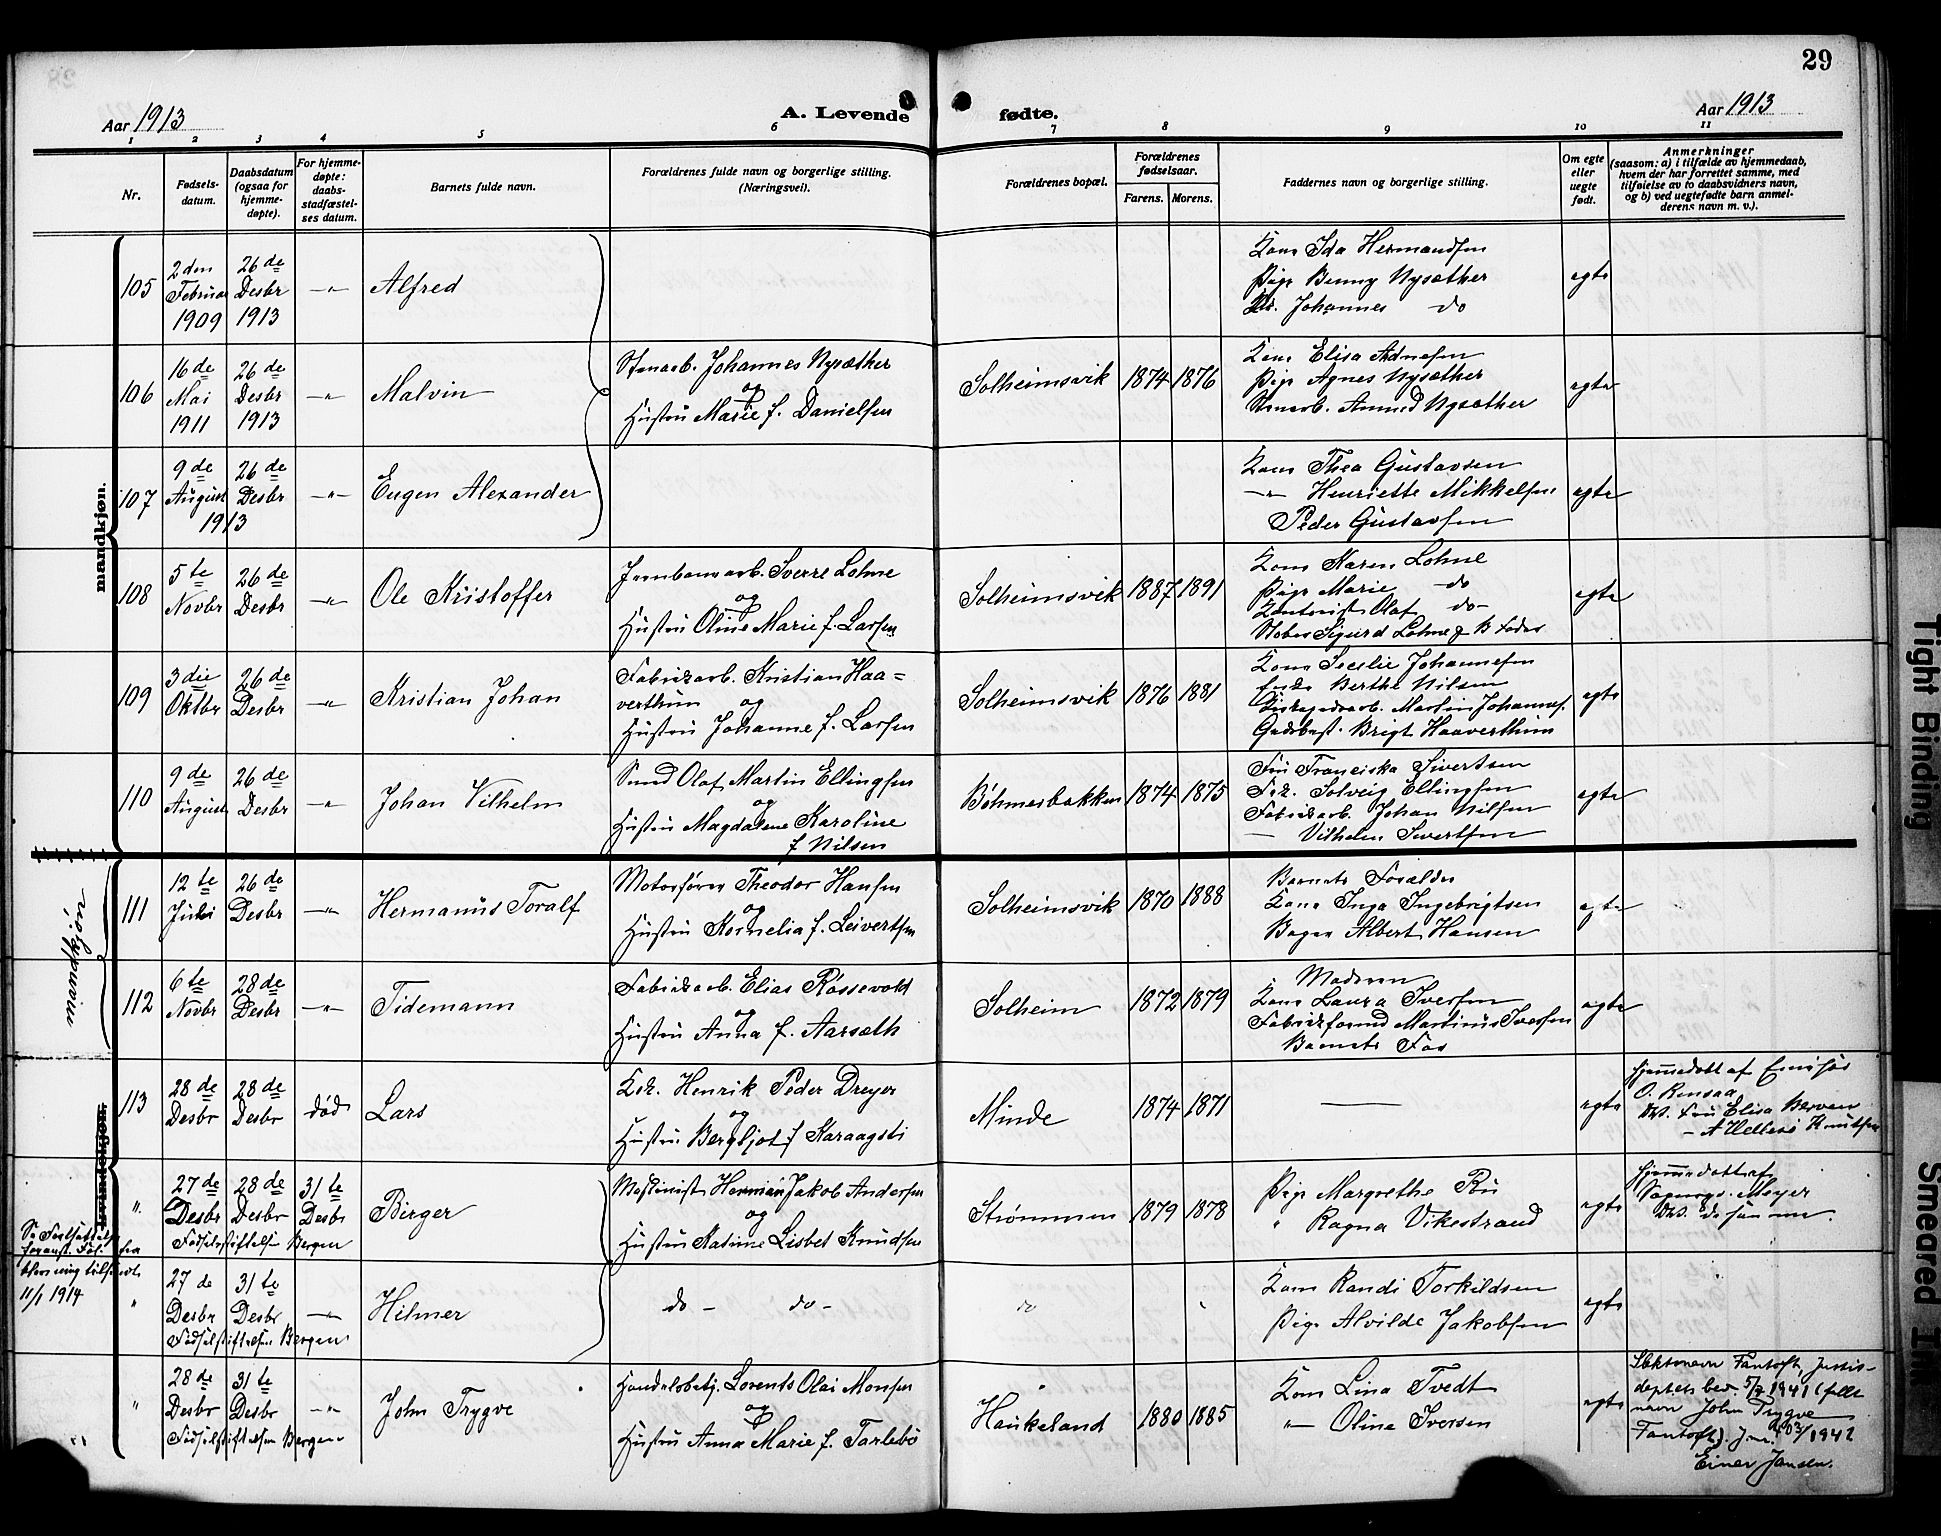 29
Aar 1913
A. Levende fødte.
Aar 1913
1 2 3 4 5 6 7 8 9 10 11
Nr.
Fødsels-
datum.
Daabsdatum
(ogsaa for
hjemme-
døpte).
For hjemme-
døpte:
daabs-
stadfæstel-
ses datum.
Barnets fulde navn.
Forældrenes fulde navn og borgerlige stilling.
(Næringsvei).
Forældrenes bopæl.
Forældrenes
fødselsaar.
Farens. Morens.
Faddernes navn og borgerlige stilling.
Om egte
eller
uegte
født.
Anmerkninger
(saasom: a) i tilfælde av hjemmedaab,
hvem der har forrettet samme, med
tilføielse av to daabsvidners navn,
og b) ved uegtefødte barn anmel-
derens navn m. v.).
mandkjøn.
105
2den
Februar
1909
26de
Desbr
1913
-"-
Alfred
Kone Ida Hermandsen
Pige Benny Nysæther
Johannes do
egte
106
16de
Mai
1911
26de
Desbr
1913
-"-
Malvin
Stenarb. Johannes Nysæther
og
Hustru Marie f. Danielsen
Solheimsvik
1874
1876
Kone Elisa Adnesen
Pige Agnes Nysæther
Stenarb. Nysæther
egte
107
9de
August
1913
26de
Desbr
-"-
Eugen Alexander
Kone Thea Gustavsen
-"- Henriette Mikkelsen
Peder Gustavsen
egte
108
5te
Novbr
26de
Desbr
-"-
Ole Kristoffer
Jernbanearb. Sverre Lohne
og
Hustru Oline Marie f. Larsen
Solheimsvik
1887
1891
Kone Karen Lohne
Pige Marie do
Kontorist Olaf do-
Sigurd Lohne & B fader
egte
109
3die
Oktbr
26de
Desbr
-"-
Kristian Johan
Fabrikarb. Kristian Haa=
verthun og
Hustru Johanne f. Larsen
Solheimsvik
1876
1881
Kone Secelie Johannesen
Enke Berthe Nilsen
Martin Johannes.
Gadebest. Brigt Haaverthun
egte
110
9de
August
26de
Desbr
-"-
Johan Vilhelm
Smed Olaf Martin Ellingsen
og
Hustru Magdalene Karoline
f Nilsen
Böhmerbakken
1874
1875
Fru Franciska Sivertsen
Frk. Solveig Ellingsen
Fabrikarb. Johan Nilsen
— Vilhelm Sivertsen
egte
111
12te
Juli
26de
Desbr
-"-
Hermanus Toralf
Motorfører Theodor Hansen
og
Hustru Kornelia f. Seivertsen
Solheimsvik
1870
1888
Barnets Forældre
Kone Inga Ingebrigtsen
Bager Albert Hansen
egte
112
6te
Novbr
28de
Desbr
-"-
Tidemann
Fabrikarb. Elias Rössevold
og
Hustru Anna f. Aarsæth
Solheim
1872
1879
Moderen
Kone Laura Iversen
Fabrikformd Martinus Iversen
Barnets Far
egte
kvindekjøn.
113
28de
Desbr
28de
Desbr
død
Lars
Henrik Peder Dreyer
og
Hustru Bergljot f Karaagsti
Minde
1874
1871
egte
hjemmedøbt af
O. Renaa
Fru Elisa Berven
"
27de
Desbr
28de
Desbr
31te
Desbr
Fødselsstiftelsen Bergen
Birger
Maskinist Herman Jakob Andersen
og
Hustru Katrine Lisbet Knudsen
Strømmen
1879
1878
Pige Margrethe Rii
" Ragna Vikestrand
egte
hjemmedøbt af
Sogneprs. Meyer
11/1 1914
"
27de
Desbr
31te
Desbr
-"-
Fødselsstiftelsen Bergen
Hilmer
do - do -
do
Kone Randi Torkildsen
Pige Alvilde Jakobsen
egte
"
28de
Desbr
31te
Desbr
-"-
Fødselsstiftelsen Bergen
John Trygve
Handelsbetj. Lorents Olai Monsen
og
Hustru Anna Marie f. Tarlebö
Haukeland
1880
1885
Kone Lina Tvedt
-"- Oline Iversen
egte
Slektsnavn Fantoft, Justis-
deptets bev. 5/7 1941 (fulle
navn John Trygve
Fantoft). J.nr. /1942
Einar Jansen.
Tight Binding
Smeared Ink